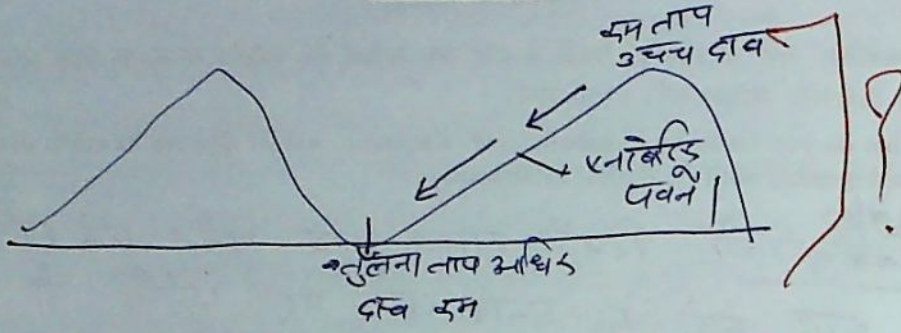 कम ताप
उच्च दाव
एनाबेटिक
पवनें
तुलना ताप अधिक
दाव कम
?